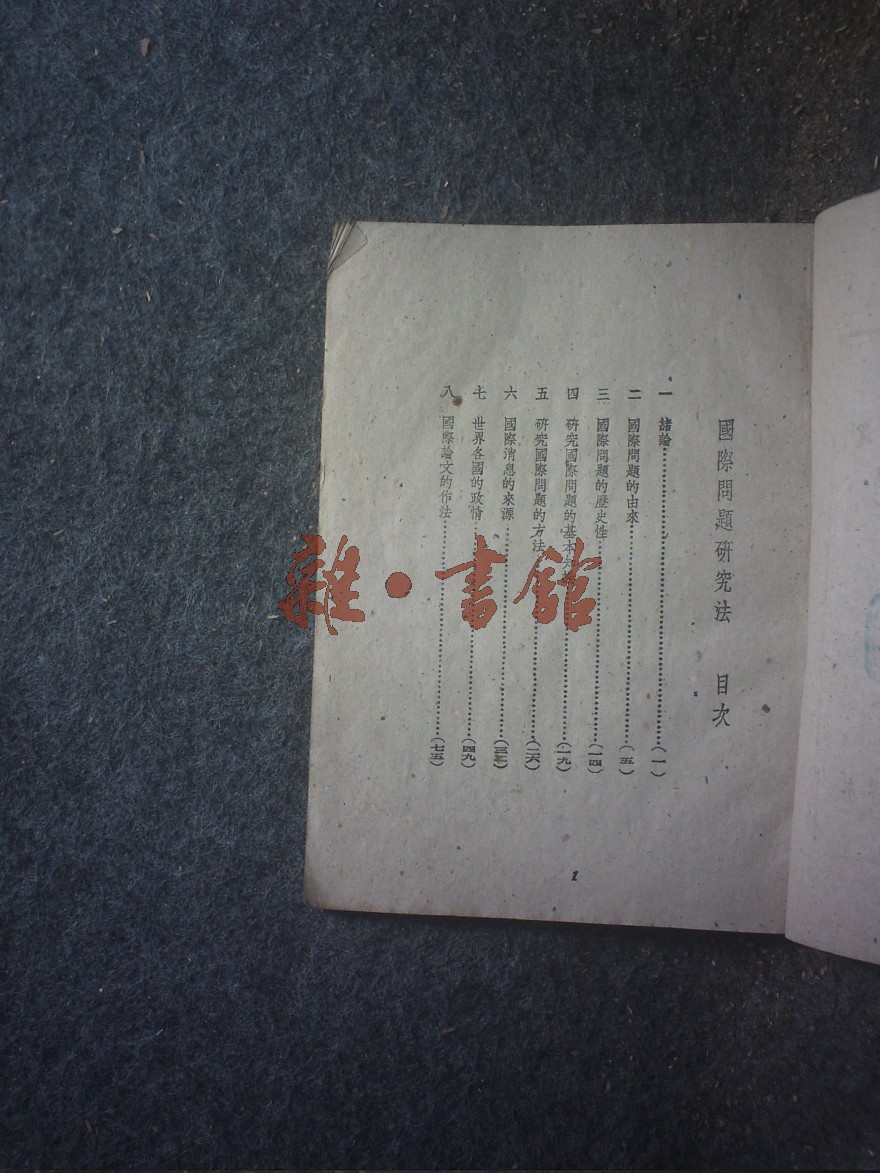 國際問題研究法 目次
一 諸論……(一)
二 國際問題的由來……(五)
三 國際問題的歷史性……(一四)
四 研究國際問題的基本……(一九)
五 研究國際問題的方法……(二六)
六 國際消息的來源……
七 世界各國的政情……(四九)
八 國際論文的作法……(七五)
1
雜·書館